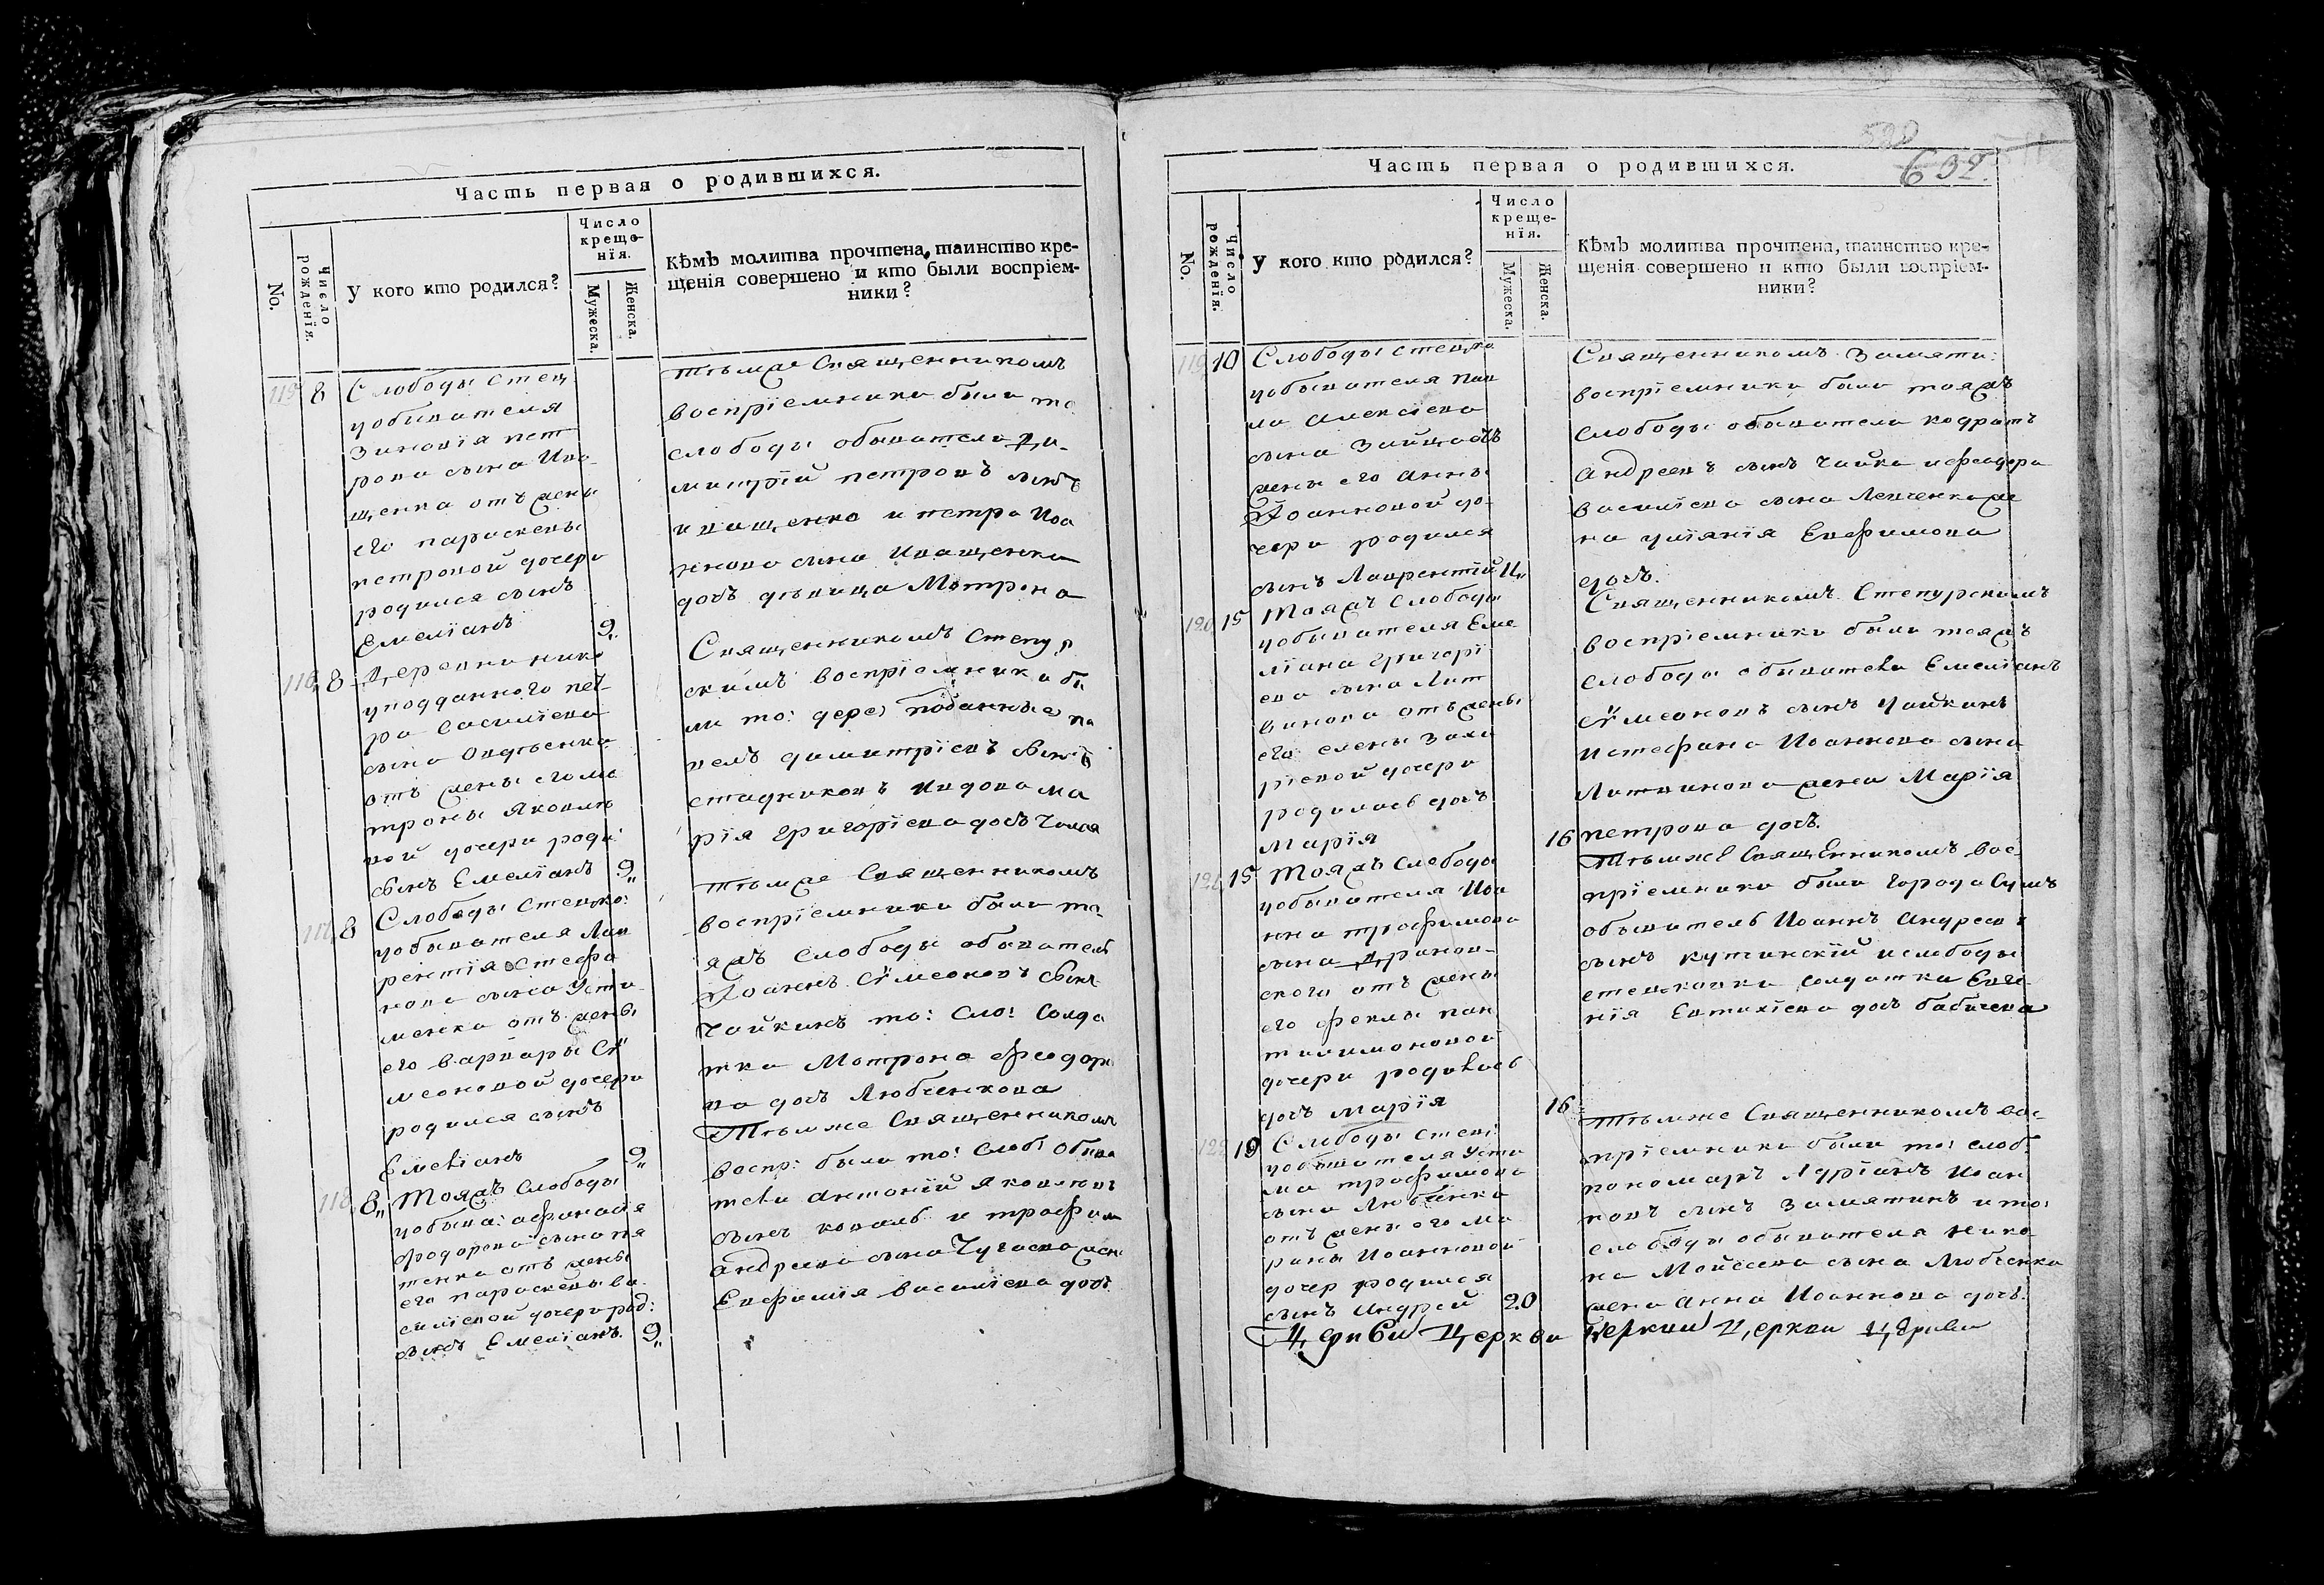 Часть первая о родившихся.
No.
Число рожденїя.
У кого кто родился?
Число
креще-
нїя.
Мужеска.
Женска.
Кѣмъ молитва прочтена, таинство кре-
щенїя совершено и кто были воспрїем-
ники?
115 8 Слободы Стец
уобывателя
Зиновїя пет
рова сына Ива
щенка отъ жены
его параскевы
петровой дочери
родился сынъ
Емелїанъ 9
тѣмже Священникомъ
воспрїемники были то
слободы обыватели Ди-
митрїй петровъ сынъ
иващенко и петра Иоа
ннова сына Иващенка
дочь дѣвица Матрона
116 8 Деревни ника
уподданного пет
ра василїева
сына Овдѣенка
отъ жены его ма
троны Яковле
вой дочери роди:
сынъ Емелїанъ 9
Священникомъ Степур
скимъ воспрїемники бы
ли то: дерев: подданные па
велъ димитрїевъ сынъ
стадниковъ ивдова ма
рїя григорїева дочь
117 8 Слободы Стецко:
уобывателя Лав
рентїя Стефа
нова сына Усти
менка отъ жены
его варвары Сѵ
меоновой дочери
родился сынъ
Емелїанъ 9
тѣмже Священникомъ
воспрїемники были то
яжъ слободы обыватель
Иоаннъ Сѵмеоновъ сынъ
Чайкинъ то: сло: солда
тка Матрона феодоро
ва дочь Любченкова
118 8 Тояжъ слободы
уобыва: афанасїя
феодорова сына пя
тенка отъ жены
его параскевы ва
силїевой дочери род:
сынъ Емелїанъ. 9
Тѣмже Священникомъ
воспр: были то: слоб: обыва
тели антонїй Яковлевъ
сынъ коваль и трофима
андреева сына Чугаева жена
Евфимїя василїева дочь
Часть первая о родившихся.
520
632.
No.
Число рожденїя.
У кого кто родился?
Число
креще-
нїя.
Мужеска.
Женска.
Кѣмъ молитва прочтена, таинство кре-
щенїя совершено и кто были воспрїем-
ники?
119 10 Слободы стецко
уобывателя пав
ла алексїева
сына Зайцова
жены его анны
Иоанновой до-
чери родился
сынъ Лаврентїй 11
Священникомъ Замяти:
воспрїемники были тояжъ
слободы обыватели кодратъ
андреевъ сынъ чайка ифеодора
василїева сына Левченка же
на улїанїя Евфимова
дочь.
120 15 Тояжъ слободы
уобывателя Еме
лїана григорї
ева сына Лит
винова отъ жены
его елены заха
рїевой дочери
родилась дочь
марїя 16
Священникомъ Степурскимъ
воспрїемники были тояжъ
слободы обыватели Емелїанъ
сѵмеоновъ сынъ Чайкинъ
истефана Иоаннова сына
Литвинова жена Марїя
петрова дочь.
121 15 Тояжъ слободы
уобывателя Иоа
нна трофимова
сына
ского отъ жены
его феклы пан
телимоновой
дочери родилась
дочь марїя 16
Тѣмже Священникомъ вос
прїемники были города Сумъ
обыватель Иоаннъ андреевъ
сынъ кутчинскїй ислободы
стецковки солдатка Евге
нїя Евтихїева дочь бабичева
122 19 Слободы Стец:
уобывателя Усти
ма трофимова
сына Любченка
отъ жены его ма
рины Иоанновой
дочер родился
сынъ андрей 20
Тѣмже Священникомъ вос
прїемники были то: слоб:
пономарь Адрїанъ Иоан
новъ сынъ Замятинъ ито:
слободы обывателя нико
на Мойсеева сына Любченка
жена анна Иоаннова дочь.
Церкви Церкви Церкви Церкви Церкви